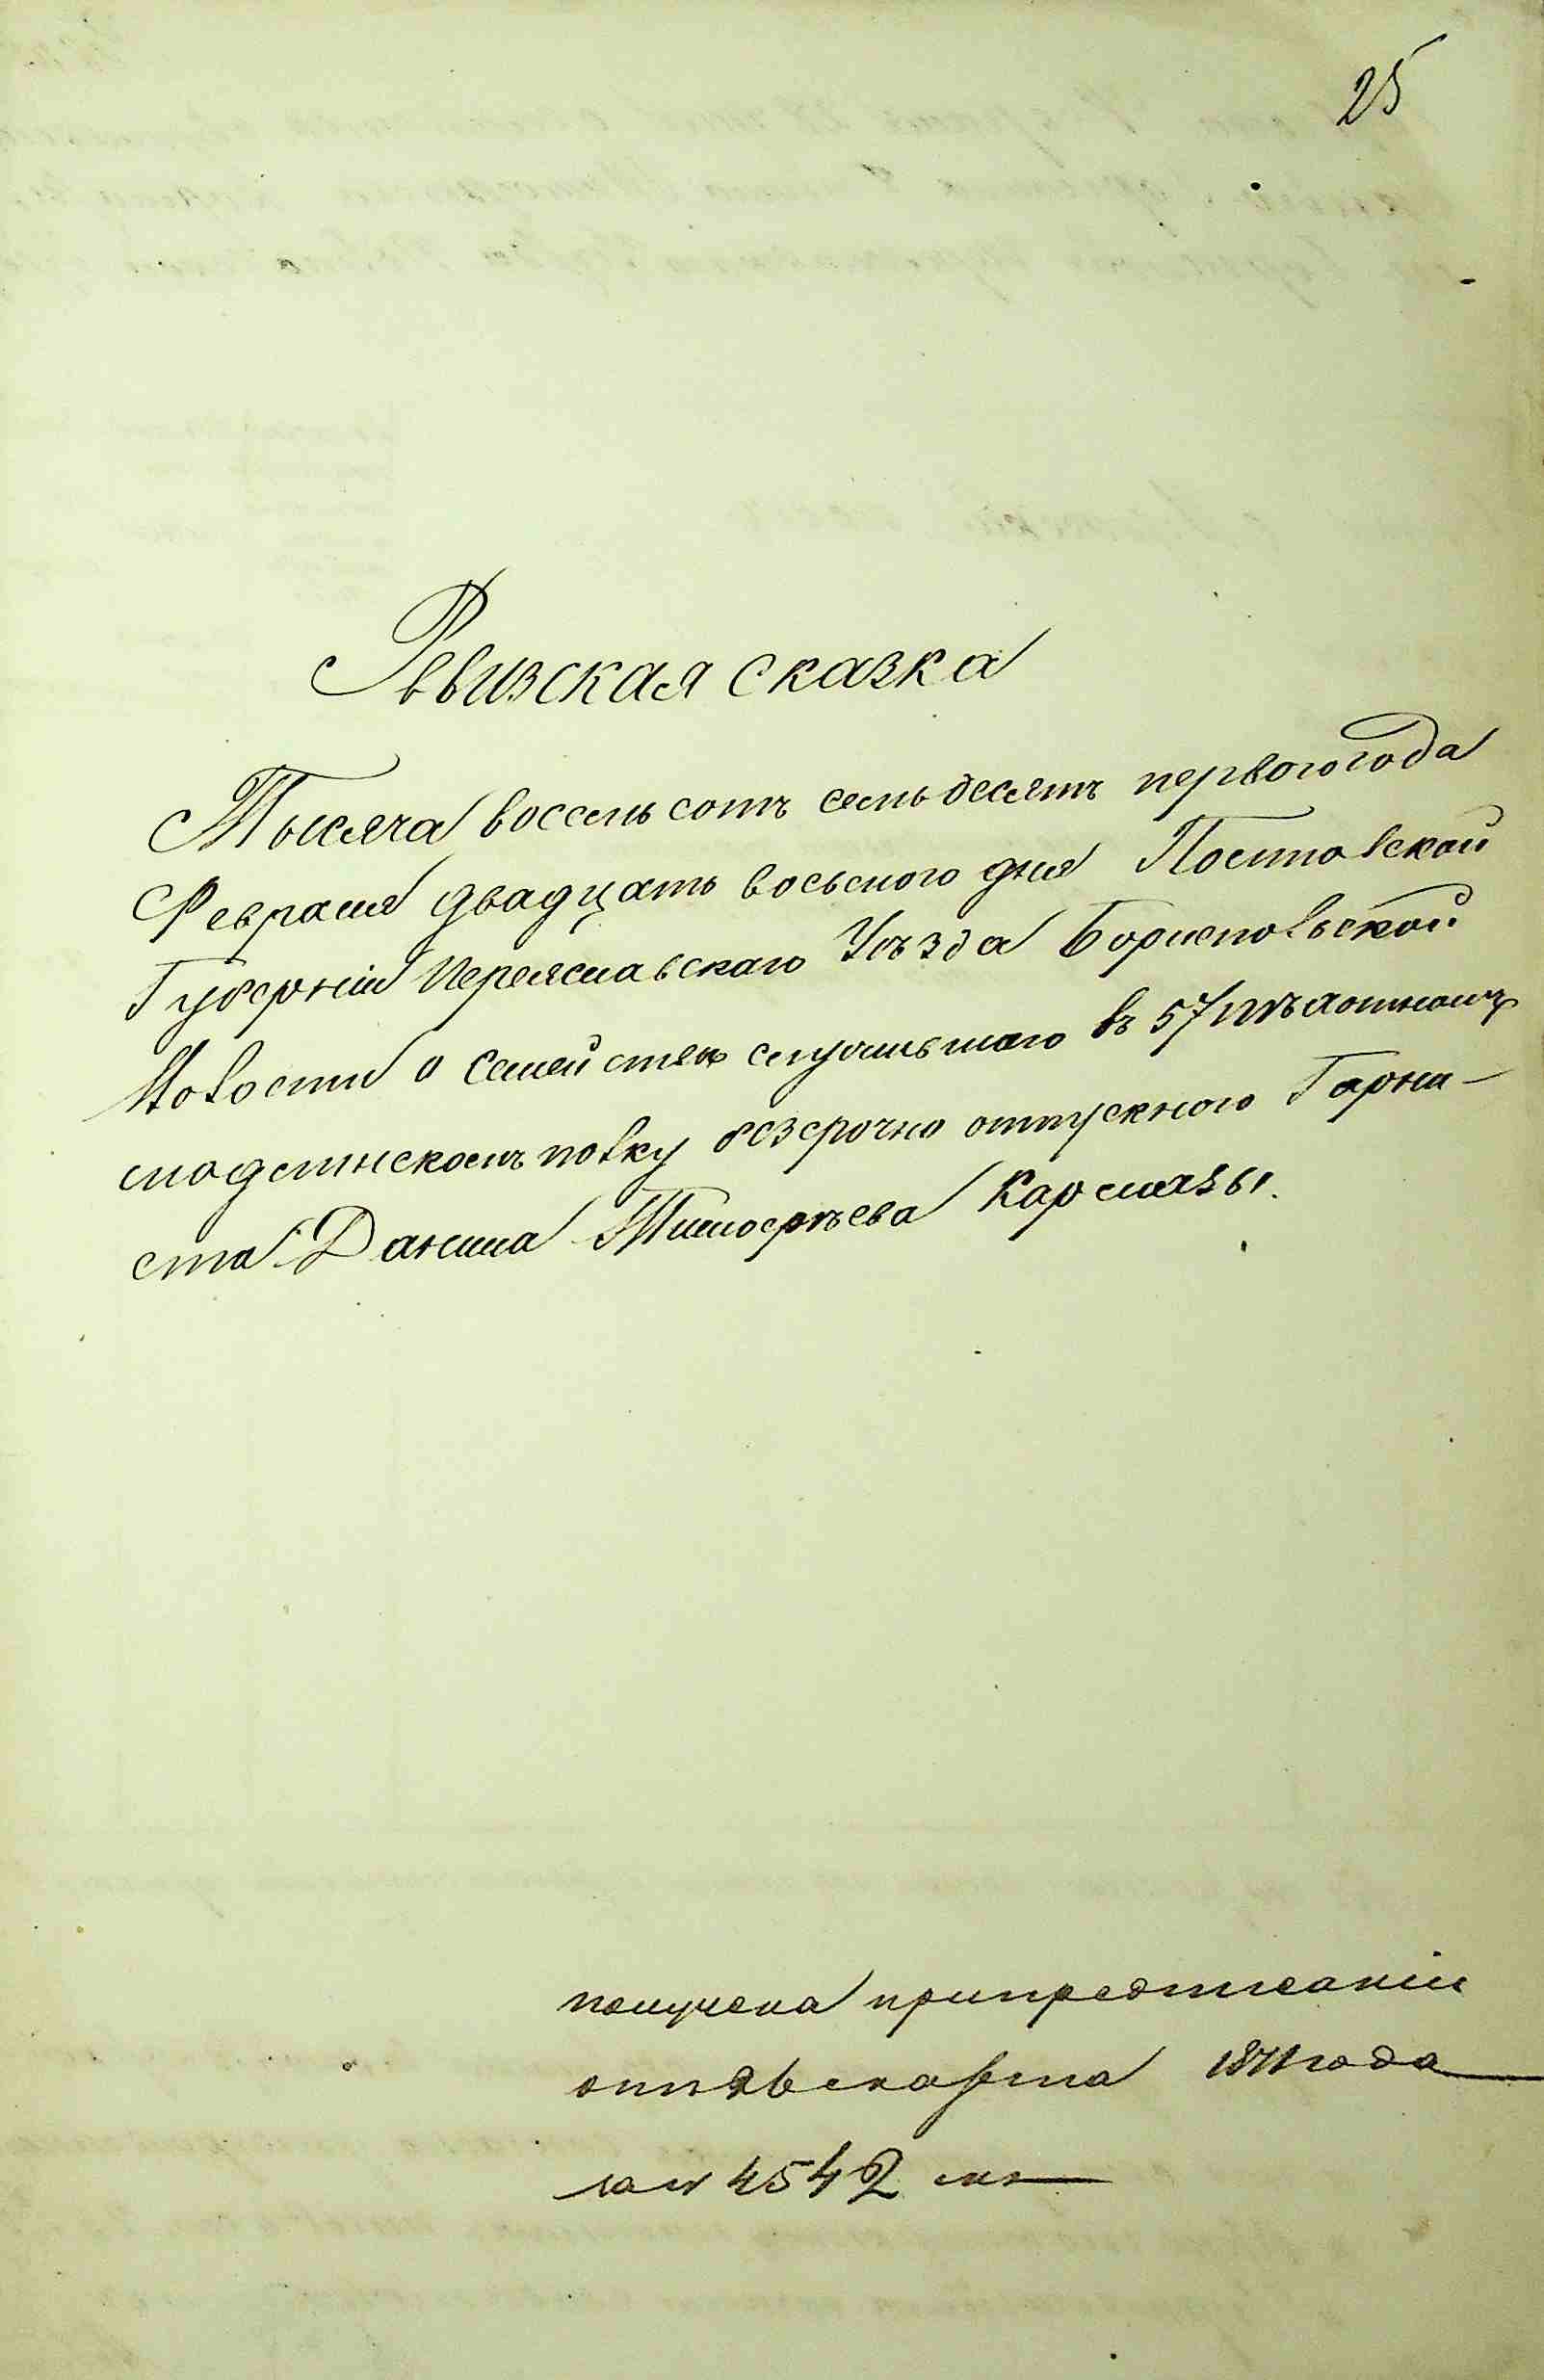 25
Ревизская сказка
Тысяча восемь сотъ семьдесятъ первого года
Февраля двадцать восьмого дня Полтавской
Губерніи Переяславскаго Уѣзда Борисповьской
Вовости о семействѣ служившаго въ 57 пѣхотномъ
модлинскомъ повку безсрочно отпускного Горни-
ста Данила Тимофѣева Кармазы.
получена припредписаніи
отъ 26 марта 1871 года
за № 4542